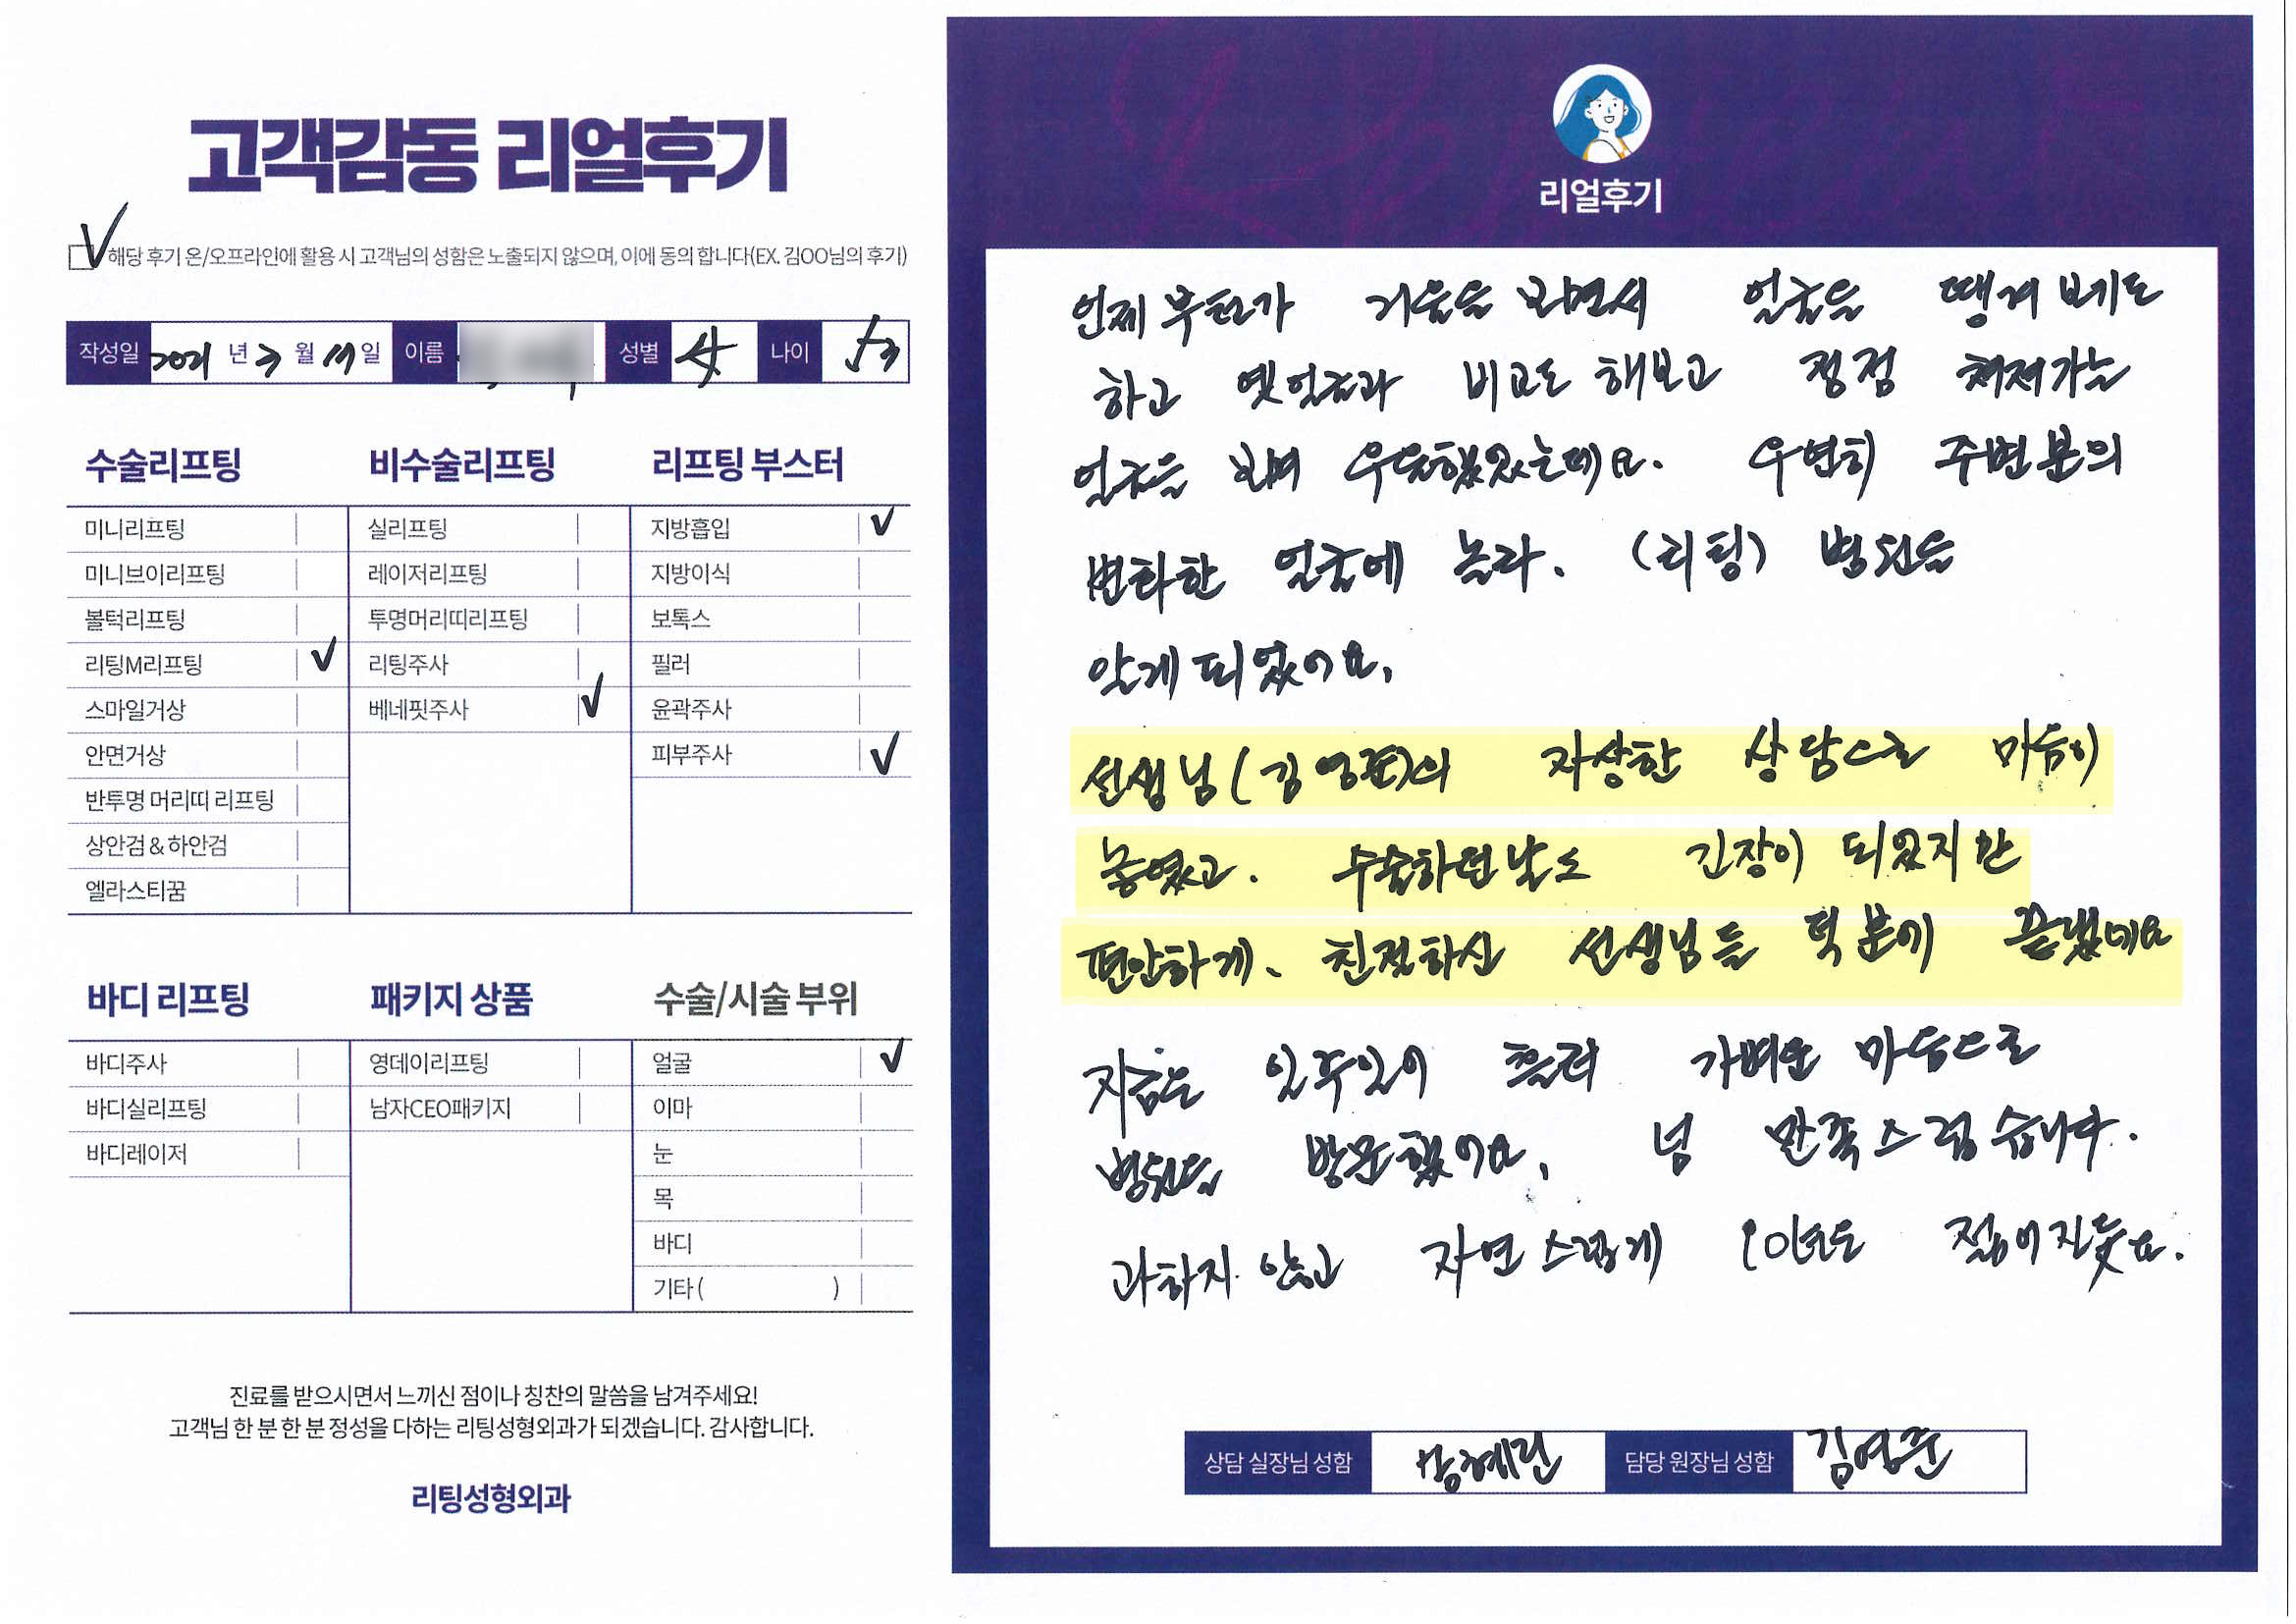 고객감동 리얼후기
해당 후기 온/오프라인에 활용 시 고객님의 성함은 노출되지 않으며, 이에 동의 합니다(EX. 김OO님의 후기)
작성일 2021 년 3 월 일 이름 성별 女 나이 53
수술리프팅 비수술리프팅 리프팅 부스터
미니리프팅 실리프팅 지방흡입 ✓
미니브이리프팅 레이저리프팅 지방이식
볼턱리프팅 투명머리띠리프팅 보톡스
리팅M리프팅 ✓ 리팅주사 필러
스마일거상 베네핏주사 ✓ 윤곽주사
안면거상 피부주사 ✓
반투명 머리띠 리프팅
상안검 & 하안검
엘라스티꿈
바디 리프팅 패키지 상품 수술/시술 부위
바디주사 영데이리프팅 얼굴 ✓
바디실리프팅 남자CEO패키지 이마
바디레이저 눈
목
바디
기타 ( )
진료를 받으시면서 느끼신 점이나 칭찬의 말씀을 남겨주세요!
고객님 한 분 한 분 정성을 다하는 리팅성형외과가 되겠습니다. 감사합니다.
리팅성형외과
리얼후기
언제부턴가 거울을 보면서 얼굴을 땡겨 보기도
하고 옛얼굴과 비교도 해보고 점점 쳐져가는
얼굴을 보며 우울했었는데요. 우연히 주변분의
변화한 얼굴에 놀라. (리팅) 병원을
알게 되었어요.
선생님(김영준)의 자상한 상담으로 마음이
놓였고. 수술하던날도 긴장이 되었지만
편안하게. 친절하신 선생님들 덕분에 끝냈네요
지금은 일주일이 흘러 가벼운 마음으로
병원을 방문했어요. 넘 만족스럽습니다.
과하지 않고 자연스럽게 10년은 젊어진듯요.
상담 실장님 성함 담당 원장님 성함 김영준